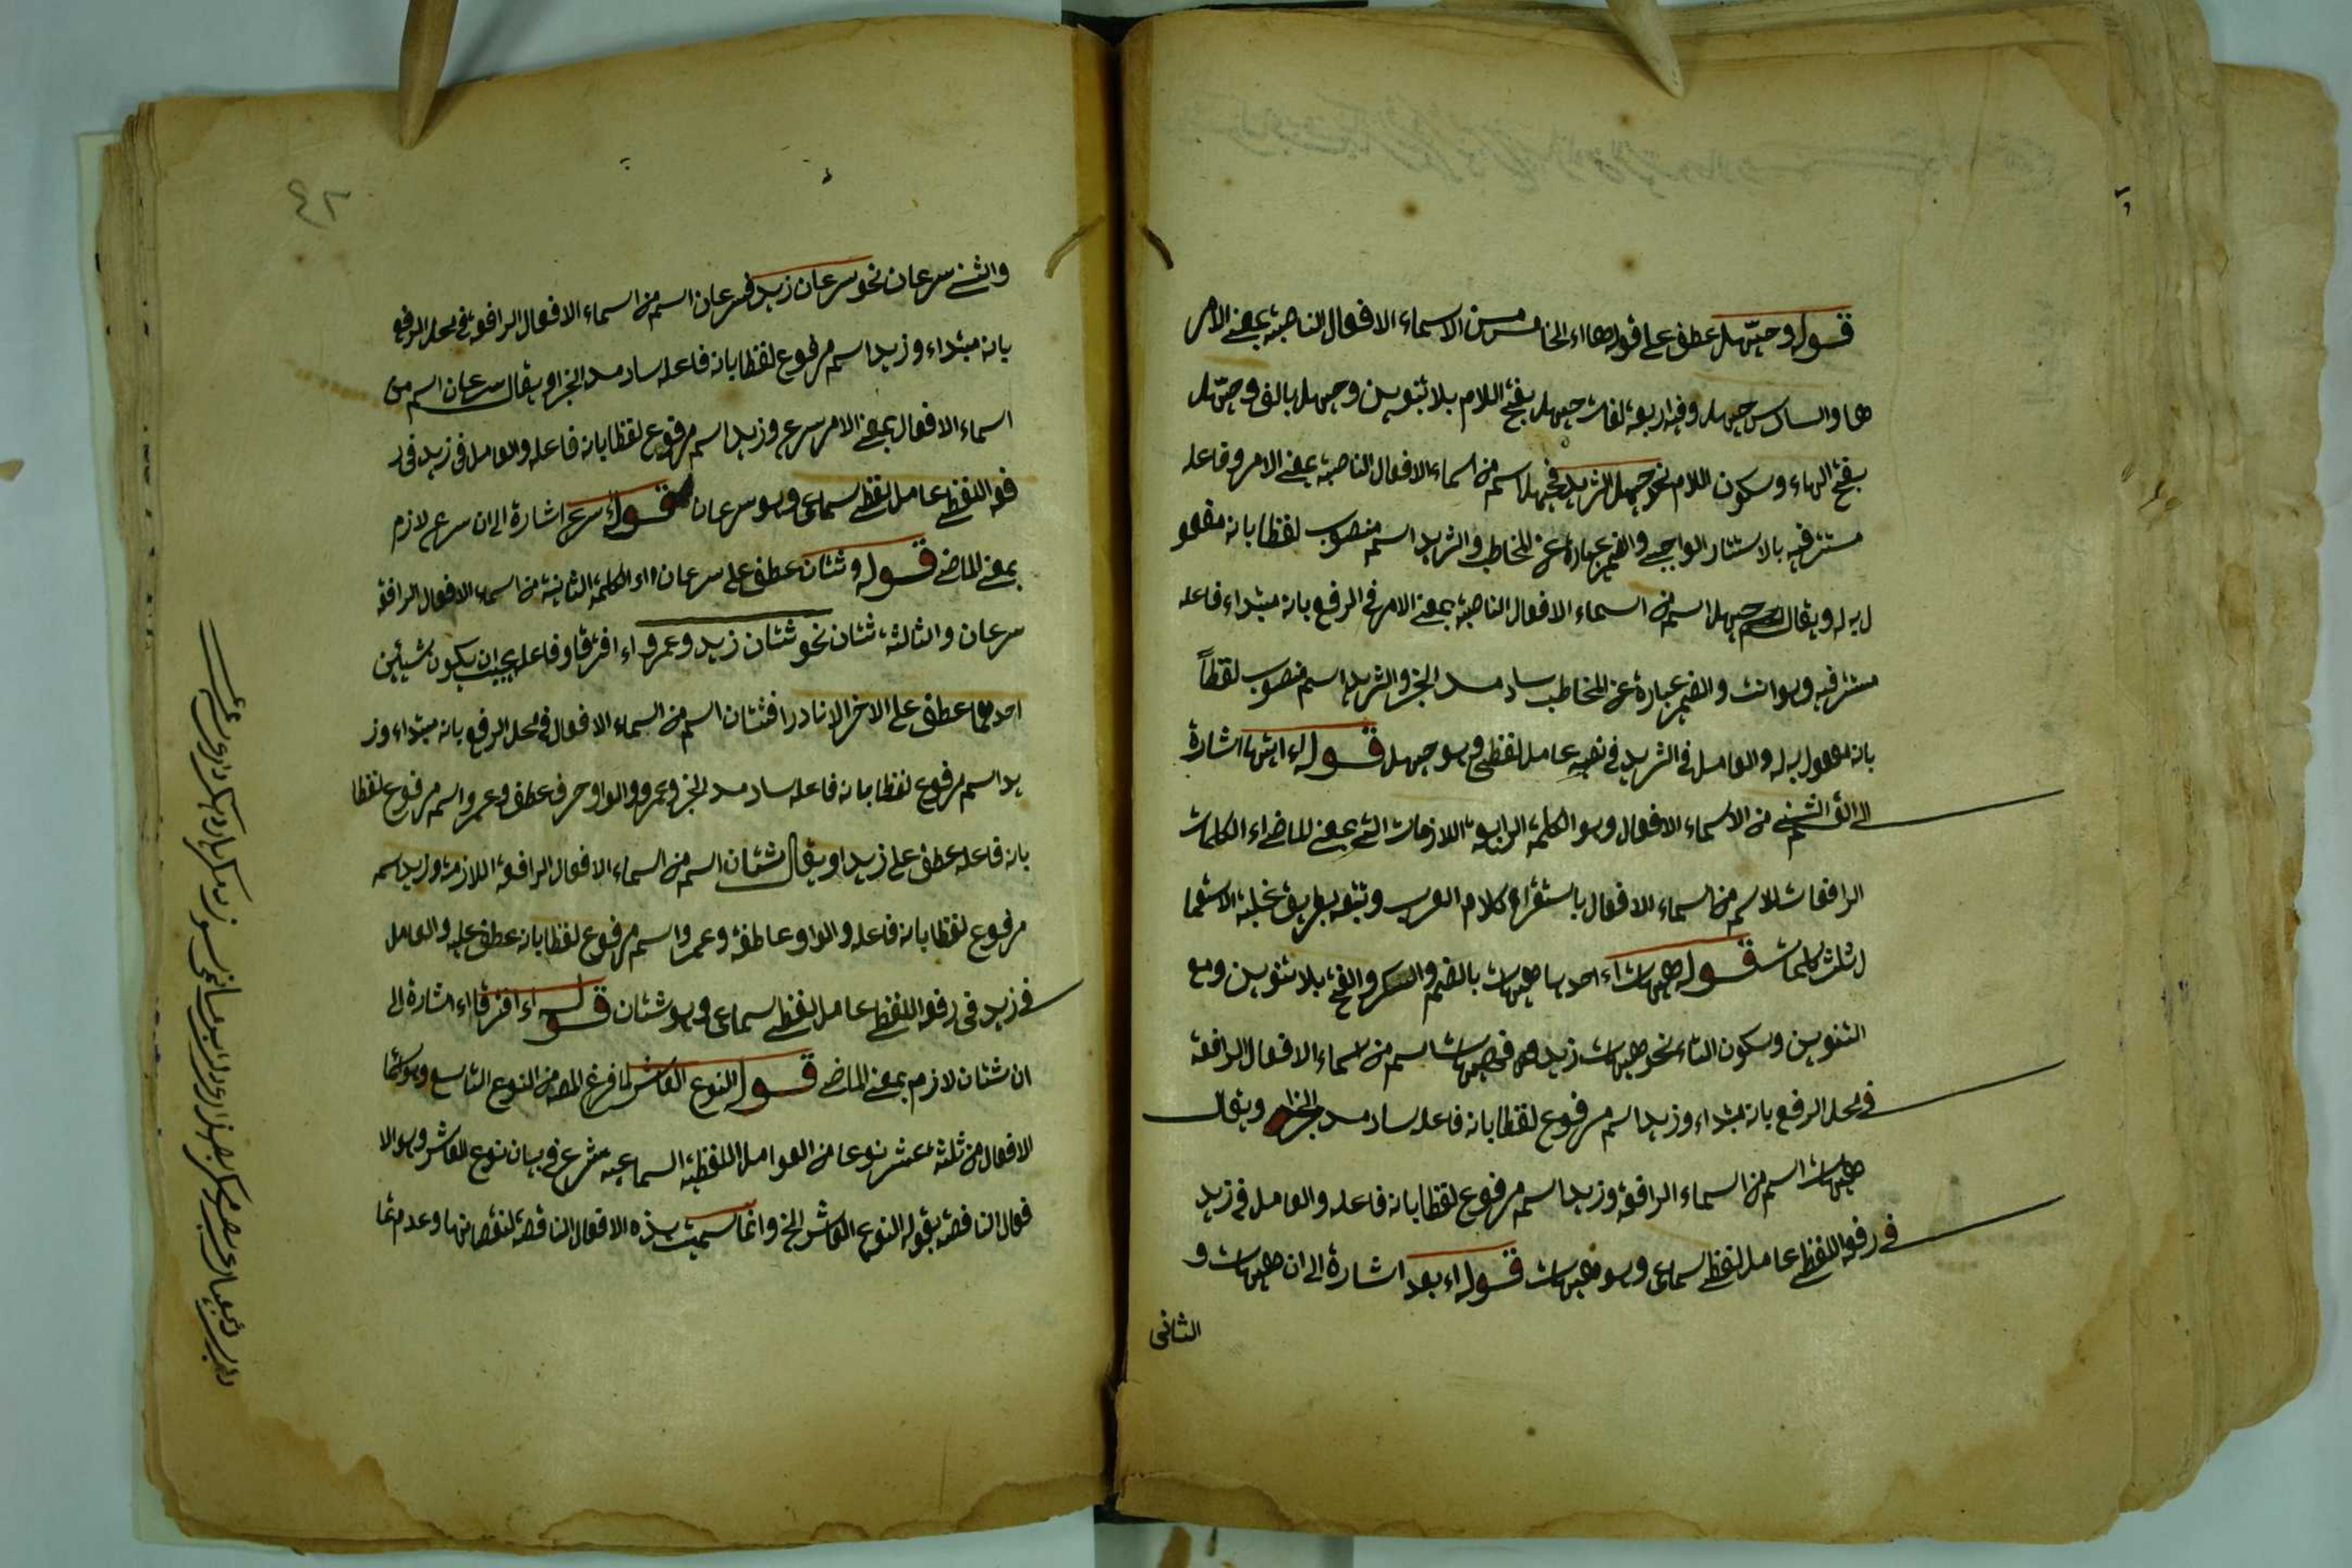 قوله وحيّهل عطف على قوله هااء الخامس من الاسماء الافعال الناصبة بمعنى الامر
ها والسادس حيهل وفيه اربعة لغات حيهل بفتح اللام بلا تنوين وحيهل بالف وحيّهل
بفتح الهاء وسكون اللام نحو حيهل الثريد فحيهل اسم من اسماء الافعال الناصبة بمعنى الامر وفاعله
مستتر فيه بالاستتار الواجبى والضمير عبارة عن المخاطب والثريد اسم منصوب لفظا بانه مفعو
ل به له ويقال حيهل اسم من اسماء الافعال الناصبة بمعنى الامر فى الرفع بانه مبتداء فاعله
مستتر فيه وهو انت والضمير عبارة عن المخاطب ساد مسد الخبر والثريد اسم منصوب لفظاً
بانه مفعول به له والعامل فى الثريد فى نصبه عامل لفظى وهو حيهل قوله اى ايتها اشارة
من الاسماء الافعال وهو الكلمة الرابعة اللازمات التى بمعنى الماضى اء الكلمات
الرافعات للاسم من اسماء الافعال باستقراء كلام العرب وتتبعه بطريق غلبة الاستعما
ل ثلث كلمات قوله هيهات اء احدها هيهات بالضم والكسر والفتح بلا تنوين ومع
التنوين وسكون التاء نحو هيهات زيد فهيهات اسم من اسماء الافعال الرافعة
فى محل الرفع بانه مبتداء وزيد اسم مرفوع لفظا بانه فاعله ساد مسد الخبر ويقال
هيهات اسم من اسماء الرافعة وزيد اسم مرفوع لفظا بانه فاعله والعامل فى زيد
فى رفعه اللفظى عامل لفظى سماعى وهو هيهات قوله اء بعد اشارة الى ان هيهات و
الثانى
٤٢
والثنى سرعان نحو سرعان زيد فسرعان اسم من اسماء الافعال الرافعة فى محل الرفع
بانه مبتداء وزيد اسم مرفوع لفظا بانه فاعله ساد مسد الخبر او يقال سرعان اسم من
اسماء الافعال بمعنى الامر سرع وزيد اسم مرفوع لفظا بانه فاعله والعامل فى زيد فى ر
فعه اللفظى عامل لفظى سماعى وهو سرعان قوله اء سرع اشارة الى ان سرع لازم
بمعنى الماضى قوله وشتان عطف على سرعان اء الكلمة الثانية من اسماء الافعال الرافعة
سرعان والثالثة شتان نحو شتان زيد وعمرو اء افترقا وفاعله يجب ان يكون شيئين
احدهما عطف على الاخر الا نادرا فشتان اسم من اسماء الافعال فى محل الرفع بانه مبتداء وز
يد اسم مرفوع لفظا بانه فاعله ساد مسد الخبر وعمرو والواو حرف عطف وعمرو اسم مرفوع لفظا
بانه فاعله عطف على زيد او يقال شتان اسم من اسماء الافعال الرافعة اللازمة وزيد اسم
مرفوع لفظا بانه فاعله والواو عاطفة وعمرو اسم مرفوع لفظا بانه عطف عليه والعامل
فى زيد فى رفعه اللفظى عامل لفظى سماعى وهو شتان قوله اء افترقا اء اشارة الى
ان شتان لازم بمعنى الماضى قوله النوع العاشر لما فرغ المص من النوع التاسع وهو اسماء
الافعال من ثلثة عشر نوعا من العوامل اللفظية السماعية شرع فى بيان نوع العاشر وهو الا
فعال الناقصة بقوله النوع العاشر الخ وانما سميت هذه الافعال الناقصة لنقصانها وعدم تما